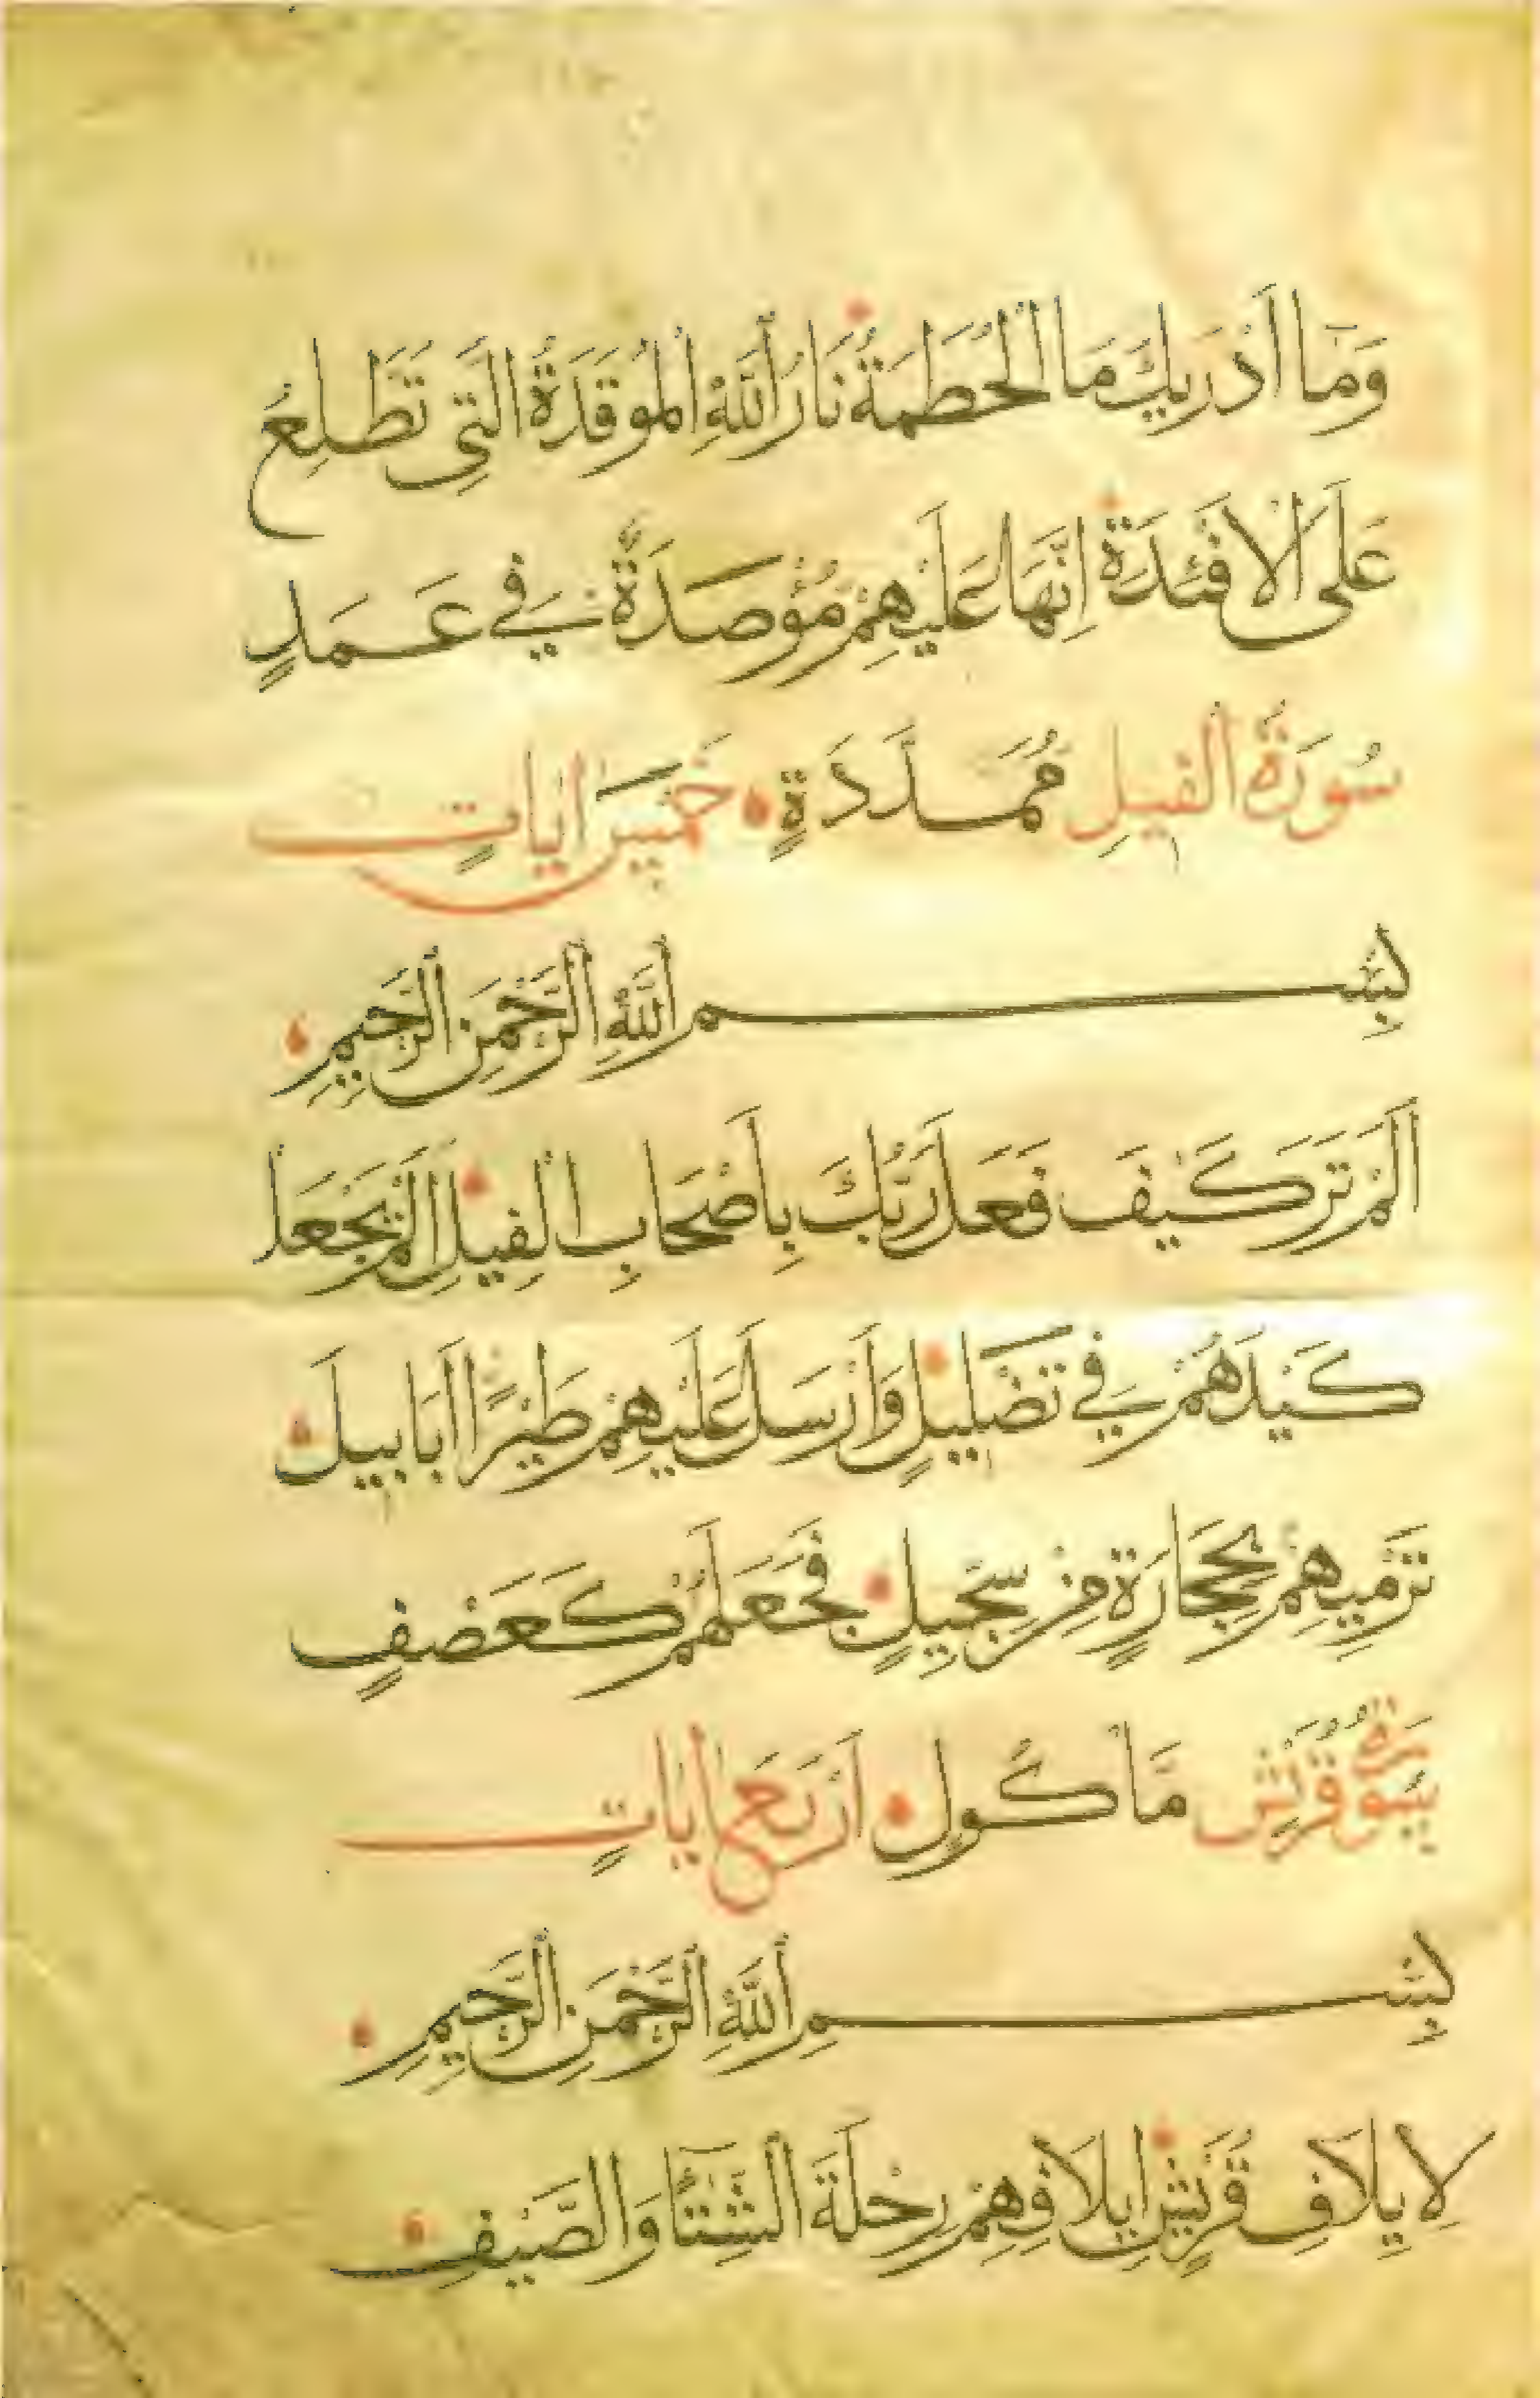 وَمَا أَدْرِيكَ مَا الْحُطَمَةُ نَارُ اللَّهِ الْمُوقَدَةُ الَّتِي تَطَّلِعُ
عَلَى الْأَفْئِدَةِ إِنَّهَا عَلَيْهِمْ مُؤْصَدَةٌ فِي عَمَدٍ
سُورَةُ الْفِيلِ مُمَدَّدَةٍ خَمْسُ آيَاتٍ
بِسْمِ اللَّهِ الرَّحْمَنِ الرَّحِيمِ
أَلَمْ تَرَ كَيْفَ فَعَلَ رَبُّكَ بِأَصْحَابِ الْفِيلِ أَلَمْ يَجْعَلْ
كَيْدَهُمْ فِي تَضْلِيلٍ وَأَرْسَلَ عَلَيْهِمْ طَيْرًا أَبَابِيلَ
تَرْمِيهِمْ بِحِجَارَةٍ مِنْ سِجِّيلٍ فَجَعَلَهُمْ كَعَصْفٍ
سُورَةُ قُرَيْشٍ مَأْكُولٍ أَرْبَعُ آيَاتٍ
بِسْمِ اللَّهِ الرَّحْمَنِ الرَّحِيمِ
لِإِيلَافِ قُرَيْشٍ إِيلَافِهِمْ رِحْلَةَ الشِّتَاءِ وَالصَّيْفِ